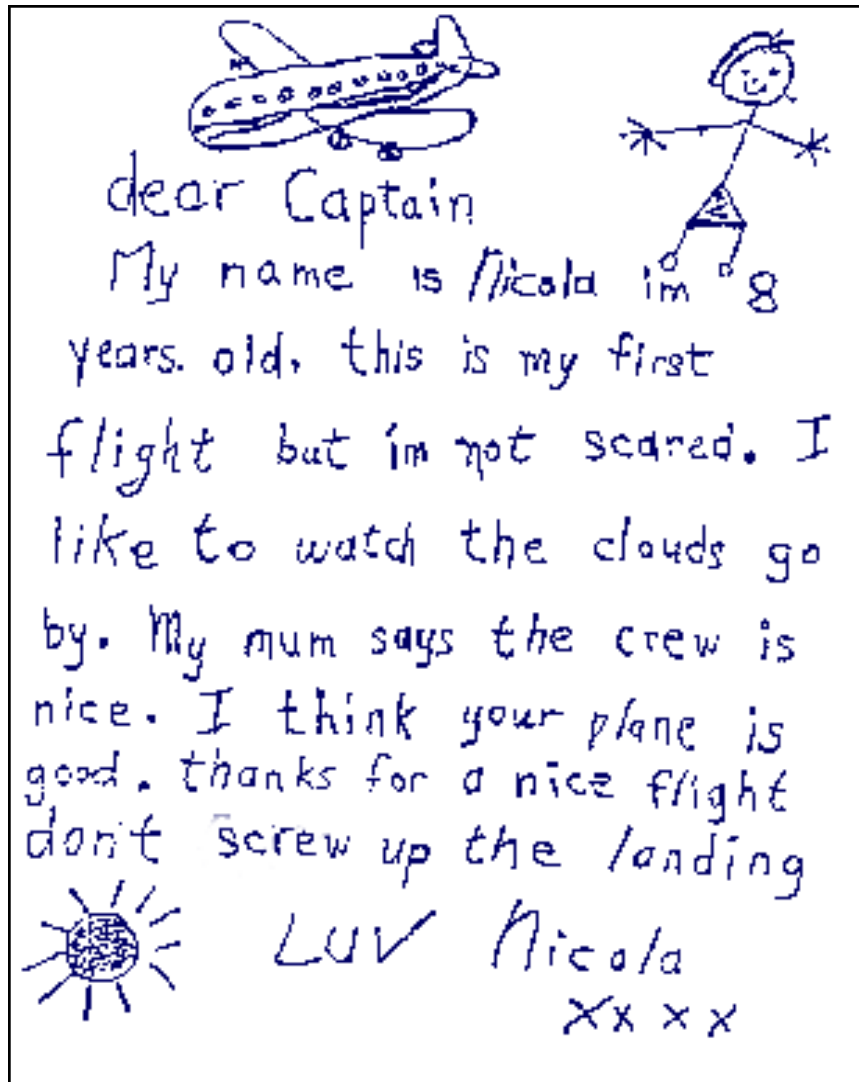 dear Captain
My name is Nicola im 8
years. old. this is my first
flight but im not scared. I
like to watch the clouds go
by. My mum says the crew is
nice. I think your plane is
good. thanks for a nice flight
don't screw up the landing
LUV Nicola
xx x x